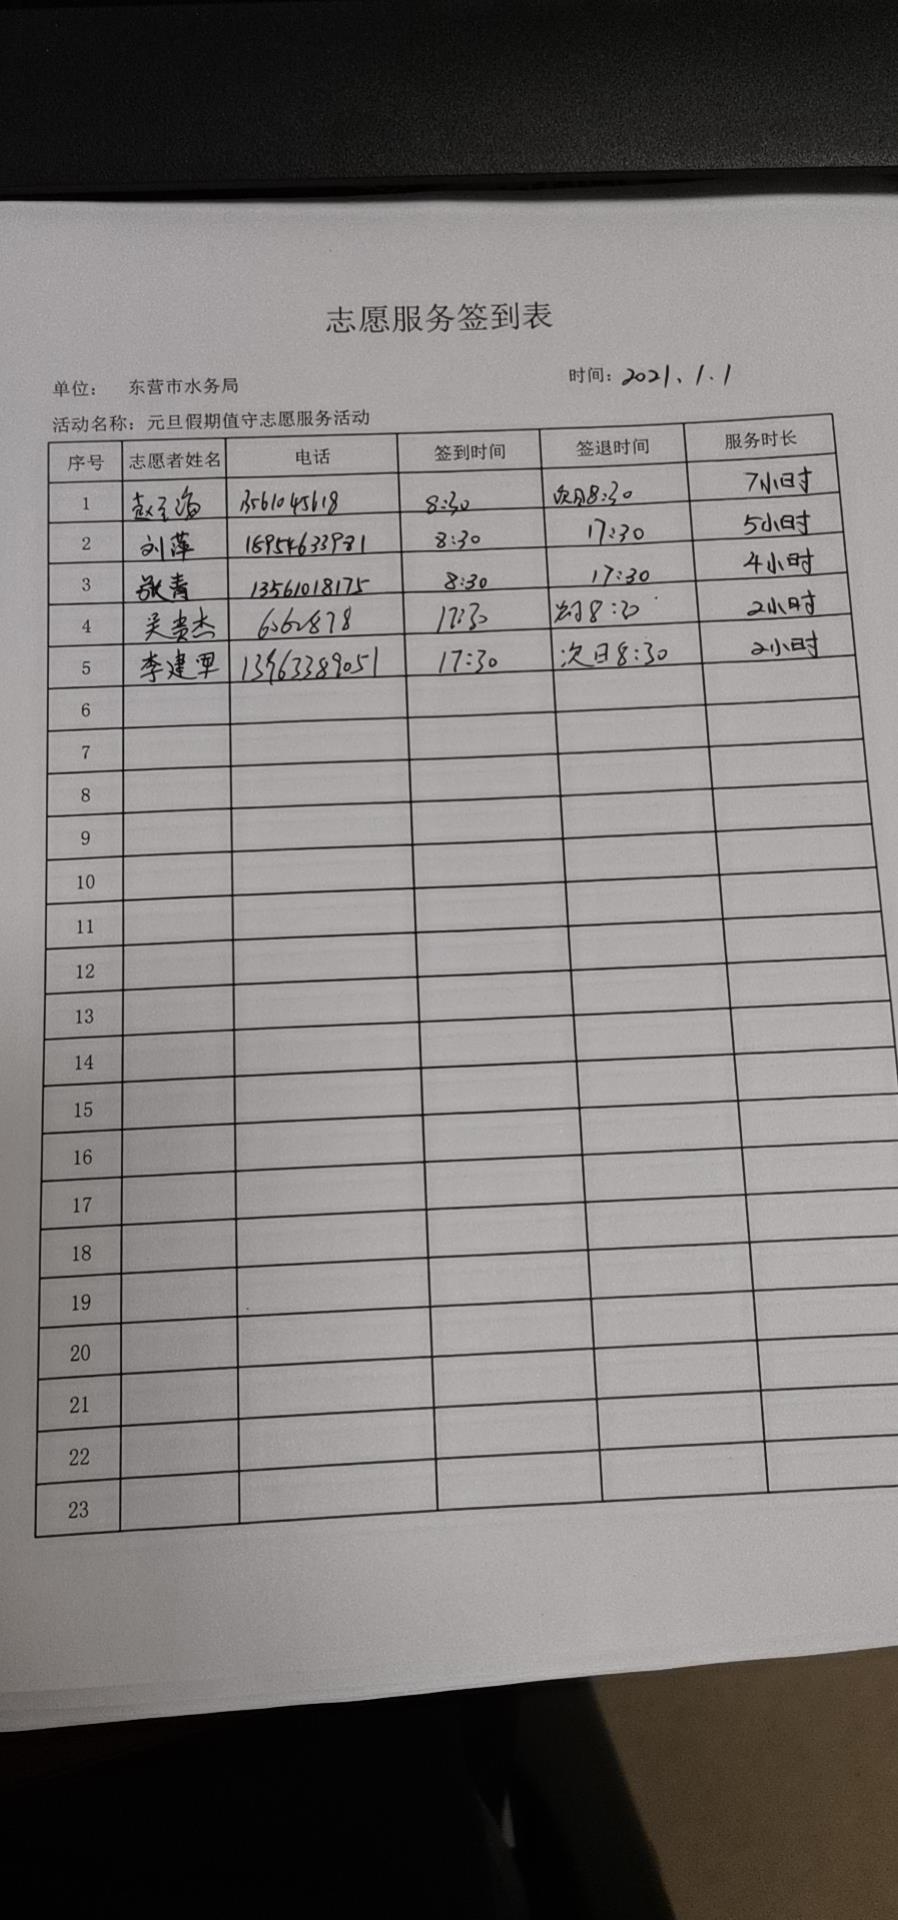 志愿服务签到表
单位： 东营市水务局 时间：2021.1.1
活动名称：元旦假期值守志愿服务活动
序号 志愿者姓名 电话 签到时间 签退时间 服务时长
1 13561045618 8:30 次日8:30 7小时
2 刘萍 18954633981 8:30 17:30 5小时
3 13561018175 8:30 17:30 4小时
4 吴贵杰 17:30 次日8:30 2小时
5 李建军 13963389051 17:30 次日8:30 2小时
6
7
8
9
10
11
12
13
14
15
16
17
18
19
20
21
22
23